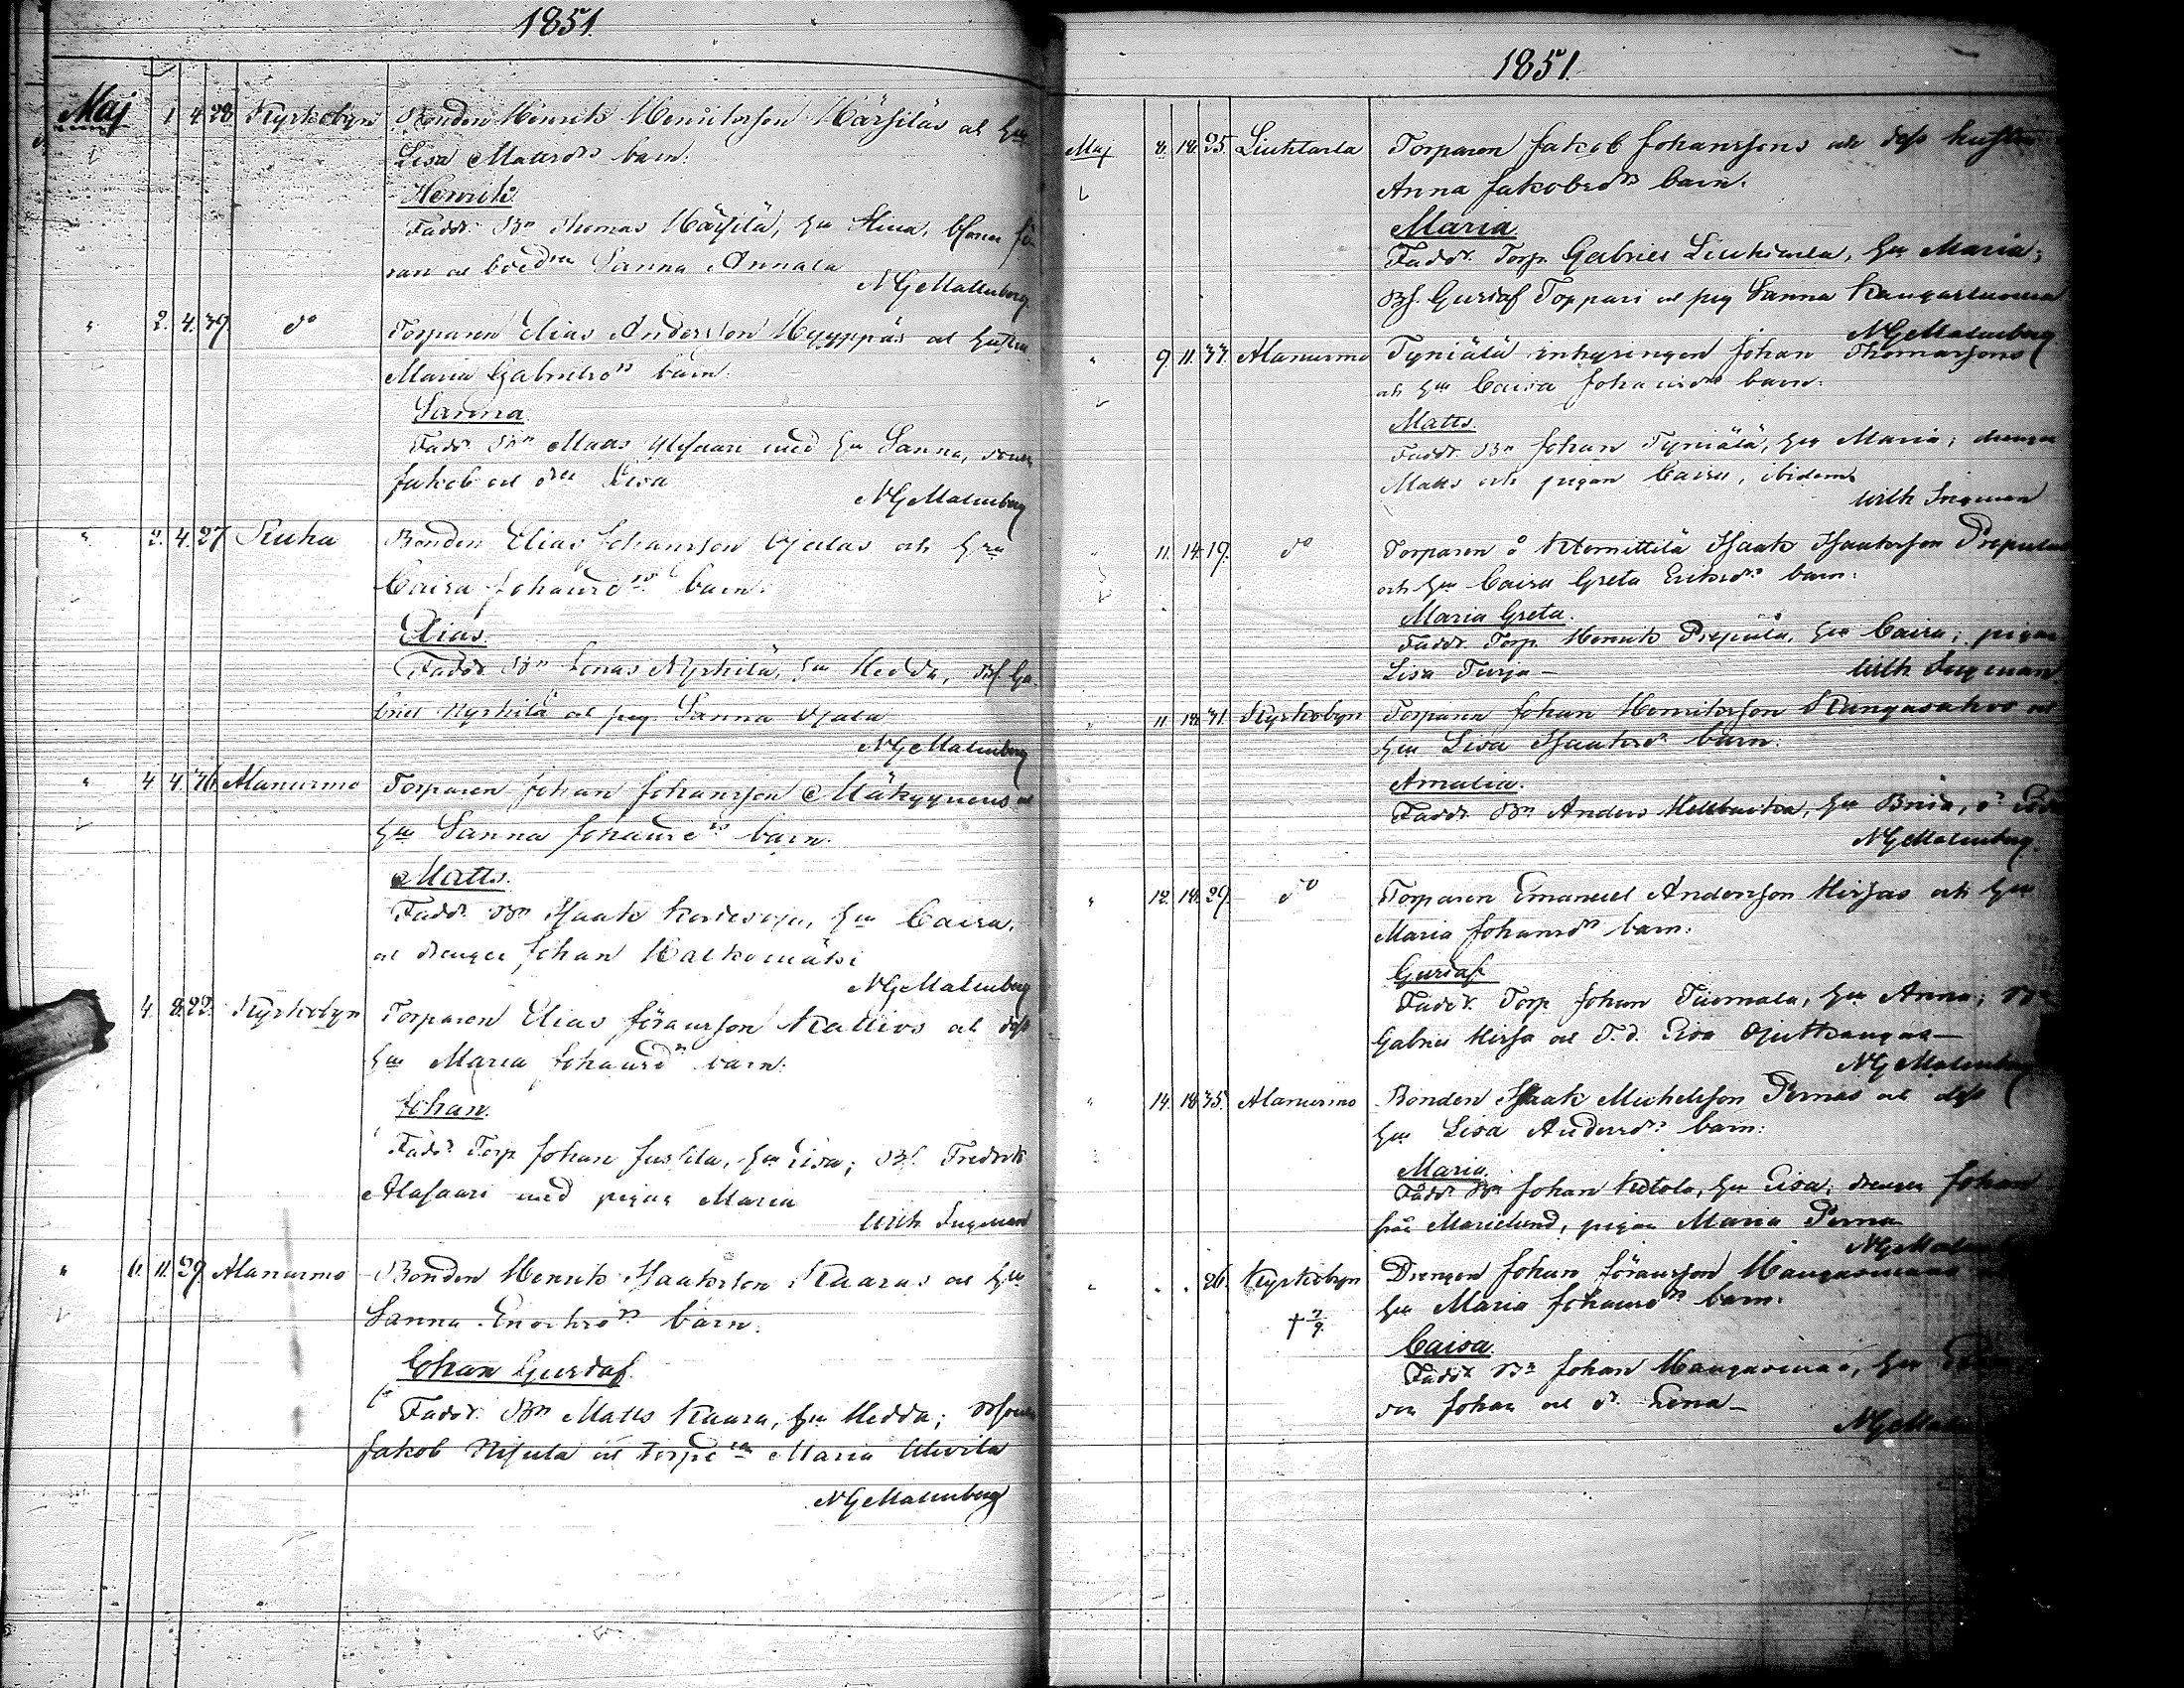 1851.
Maj 1 4 28 Kyrkobyn Bonden Henrik Henriksson Härsiläs och hu
Lisa Mattsdr barn:
Henrik
Fadd. Bn Thomas Härsilä, hu Stina, bsonen Jö
ran och bdr Sanna Annala
NGMalmberg
" 2. 4. 39. do Torparen Elias Andersson Hyyppäs och hustru
Maria Gabrielsdr barn.
Sanna
Fadd. Bn Matts Alasaari med hu Sanna, sonen
Jakob och dr Lisa
NGMalmberg
" 2. 4. 27 Ruha Bonden Elias Johansson Ojalas och hu
Caisa Johansdr barn:
Elias.
Fadd. Bn Jonas Nyrhilä, hu Hedda, Bs. Ga
briel Nyrhilä och pig. Sanna Ojala
NGMalmberg
" 4 4 36 Alanurmo Torparen Johan Johansson Mäkyynens och
hu Sanna Johansdr barn.
Matts.
Fadd. Bn Isaak, hu Caisa,
och drengen Johan Halkomäki
NGMalmberg
4. 8. 23. Kyrkobyn Torparen Elias Göransson Kallios och dess
hu Maria Johansdr barn:
Johan.
Fadd. Torp Johan Jussila, hu Lisa; Bs. Fredrik
Alasaari med pigan Maria
Wilh Ingman
" 6. 11. 29. Alanurmo Bonden Henrik Isaksson Kaaras och hu
Sanna Enochsdr barn.
Johan Gustaf.
Fadd. Bn Matts Kaara, hu Hedda; Bsonen
Jakob Nisula och torpd Maria Ulvila
NGMalmberg
1851.
Maj 8. 18. 25. Liuhtarla Torparen Jakob Johanssons och dess hustru
Anna Jakobsdr barn.
Maria
Fadd. Torp. Gabriel Liuhtarla, hu Maria;
Bs. Gustaf Toppari och pig Sanna Kangasluoma
NGMalmberg
" 9. 11. 37. Alanurmo Tyniälä inhysingen Johan Thomassons
och hu Caisa Johansdr barn:
Matts.
Fadd. Bn Johan Tyniälä, hu Maria; drengen
Matts och pigan Caisa, ibidem
Wilh Ingman
" 11. 14. 19. do Torparen å Klemittilä Isaak Isaaksson Prepulas
och hu Caisa Greta Eriksdr barn:
Maria Greta.
Fadd. Torp. Henrik Prepula, hu Caisa; pigan
Lisa Turja — Wilh Ingman
" 11. 18. 31. Kyrkobyn Torparen Johan Henriksson Kangasahos och
hu Lisa Isaaksdr barn:
Amalia.
Fadd. Bn Anders, hu Brita, dr Lisa
NGMalmberg.
" 12. 18. 29. do Torparen Emanuel Andersson Hirsas och hu
Maria Johansdr barn:
Gustaf.
Fadd. Torp Johan Tuomala, hu Anna; Bn
Gabriel Hirsa och T.d. Lisa Ojutkangas —
NGMalmberg
" 14. 18. 35. Alanurmo Bonden Isaak Michelsson Pernas och dess
hu Lisa Andersdr barn:
Maria.
Fadd. Bn Johan Ketola, hu Lisa; drengen Johan
från Marielund, pigan Maria Perna
NGMalmberg
" " " 26. Kyrkobyn Drengen Johan Göransson Mangasmaas
hu Maria Johansdr barn:
† 2/9. Caisa.
Fadd. Bn Johan Mangasmaa, hu
son Johan och dr Lena —
NGMalmberg